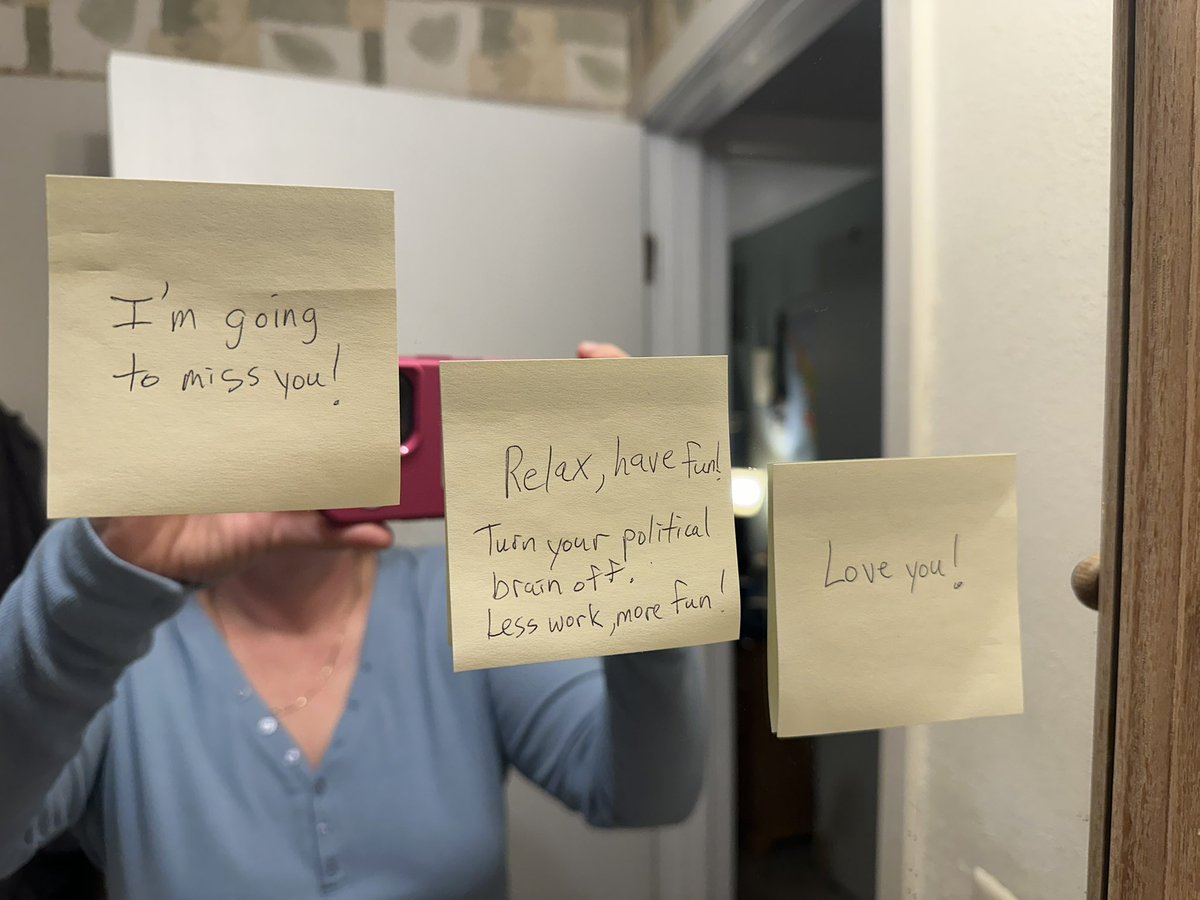 I'm going
to miss you!
Relax, have fun!
Turn your political
brain off.
Less work, more fun!
Love you!